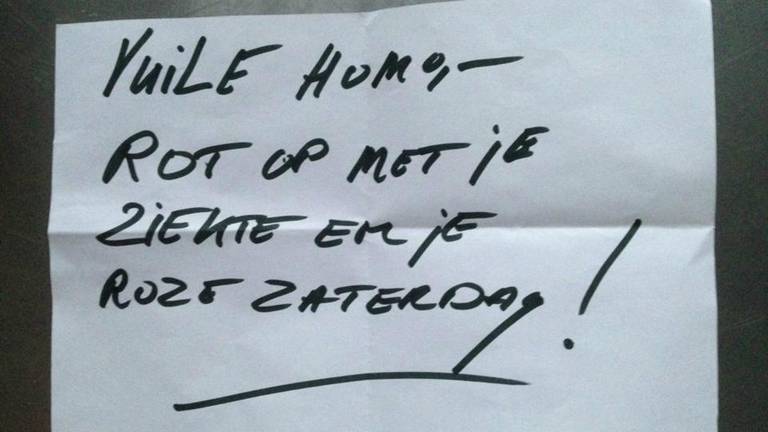 VUiLE HOMO,-
ROT OP MET jE
ZiEKTE EN jE
ROZE ZATERDAG!